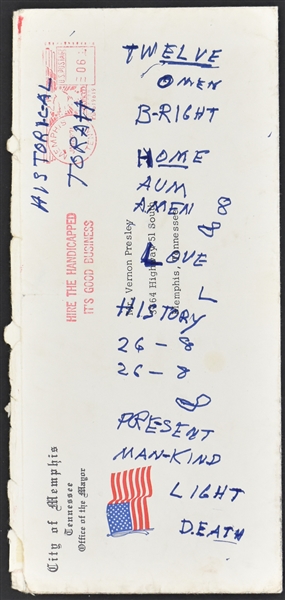 TWELVE
OMEN
B-RIGHT
HOME
AUM
AMEN
& 8
LOVE
L
HISTORY
26-8
26-8
8
PRESENT
MAN-KIND
LIGHT
DEATH
HISTORICAL
TORAH
HIRE THE HANDICAPPED
IT'S GOOD BUSINESS
Vernon Presley
Highway 51 South
Memphis, Tennessee
City of Memphis
Tennessee
Office of the Mayor